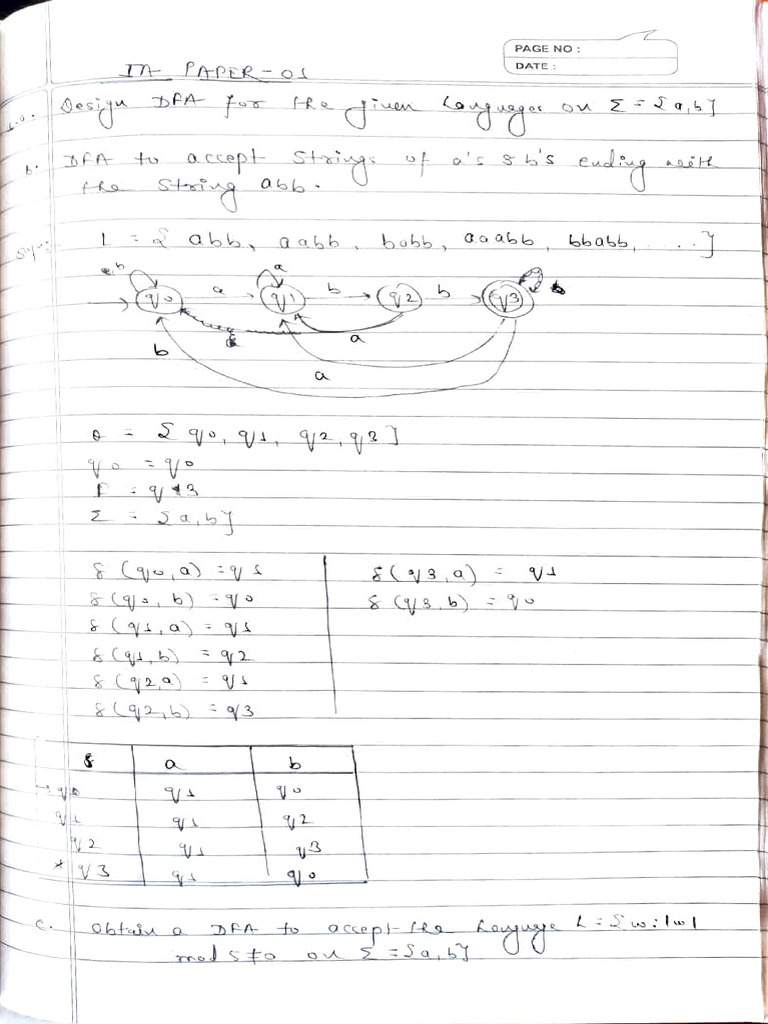 PAGE NO :
DATE :
IA PAPER-01
1.a. Design DFA for the given Languages on Σ = {a,b}
b. DFA to accept strings of a's & b's ending with
the string abb.
L = { abb, aabb, babb, aaabb, bbabb, ....}
b a
q0 a q1 b q2 b q3
a
b
a
Q = { q0, q1, q2, q3 }
q0 = q0
F = q3
Σ = {a,b}
δ (q0, a) = q1 δ (q3, a) = q1
δ (q0, b) = q0 δ (q3, b) = q0
δ (q1, a) = q1
δ (q1, b) = q2
δ (q2, a) = q1
δ (q2, b) = q3
δ a b
→ q0 q1 q0
q1 q1 q2
q2 q1 q3
* q3 q1 q0
c. Obtain a DFA to accept the Language L = {w: |w|
mod 5 ≠ 0 on Σ = {a,b}